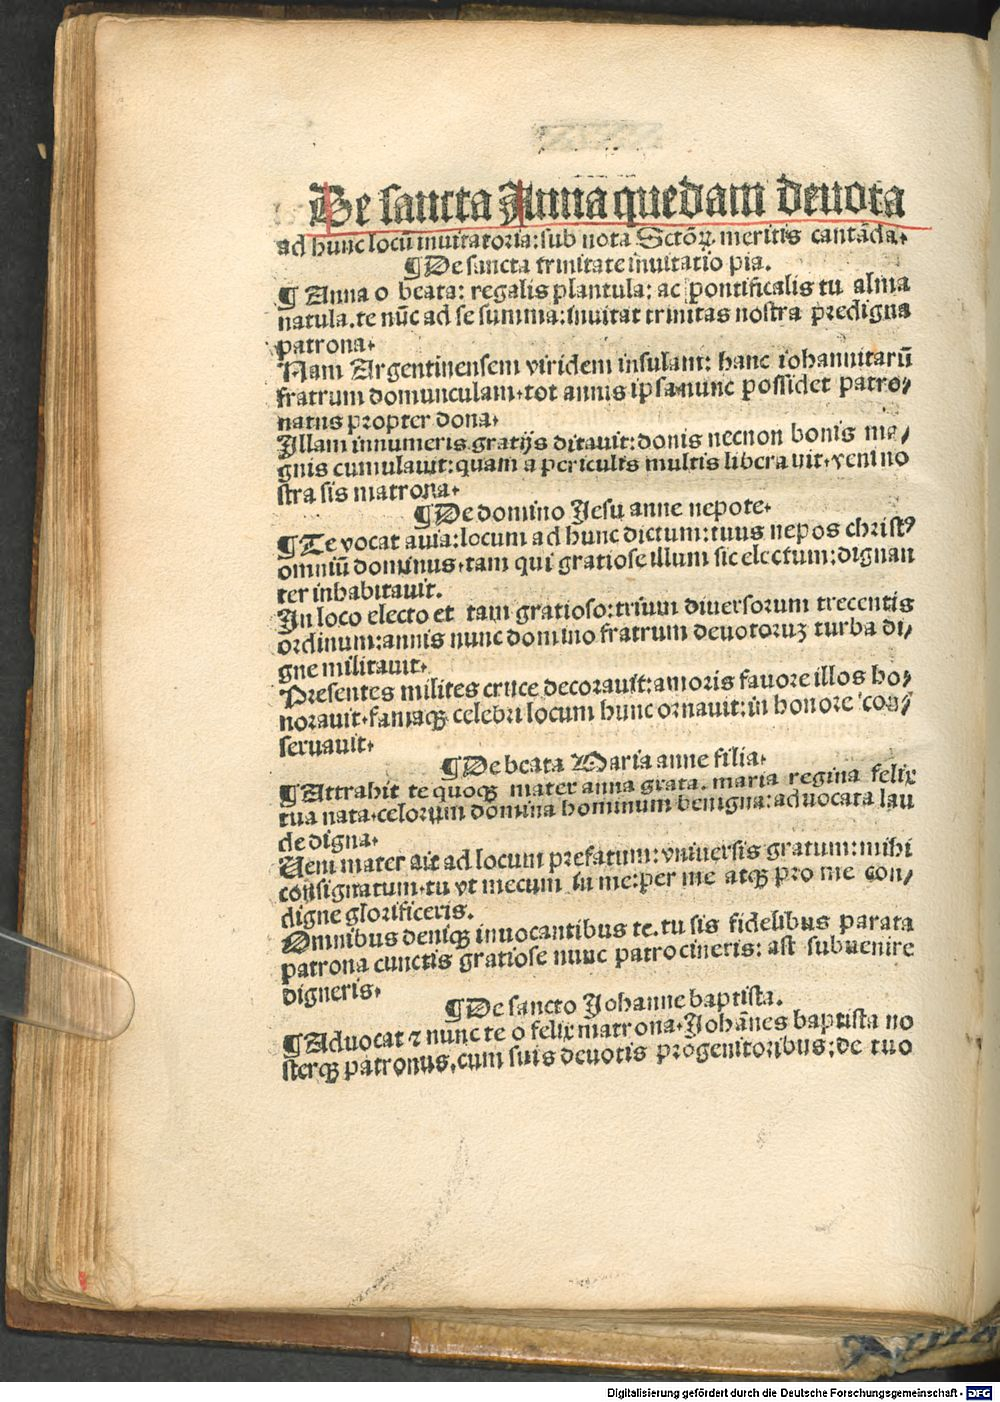 De sancta Anna quedam deuota
ad hunc locū inuitatoria: sub nota Sctōꝝ meritis cantāda.
¶ De sancta trinitate inuitatio pia.
¶ Anna o beata: regalis plantula: ac pontificalis tu alma
natula. te nūc ad se summa: inuitat trinitas nostra predigna
patrona.
Nam Argentinensem viridem insulam: hanc iohannitarū
fratrum domunculam. tot annis ipsa nunc possidet patro/
natus propter dona.
Illam innumeris gratijs ditauit: donis necnon bonis ma/
gnis cumulauit: quam a periculis multis libera uit. veni no
stra sis matrona.
¶ De domino Jesu anne nepote.
¶ Te vocat auia: locum ad hunc dictum: tuus nepos christꝰ
omniū dominus. tam qui gratiose illum sic electum: dignan
ter inhabitauit.
In loco electo et tam gratioso: trium diuersorum trecentis
ordinum: annis nunc domino fratrum deuotoruꝫ turba di/
gne militauit.
Presentes milites cruce decorauit: amoris fauore illos ho/
norauit. famaqꝫ celebri locum hunc ornauit: in honore con/
seruauit.
¶ De beata Maria anne filia.
¶ Attrahit te quoqꝫ mater anna grata. maria regina felix
tua nata. celorum domina hominum benigna: aduocata lau
de digna.
Ueni mater ait ad locum prefatum: vniuersis gratum: mihi
consignatum. tu vt mecum in me: per me atqꝫ pro me con/
digne glorificeris.
Omnibus deniqꝫ inuocantibus te. tu sis fidelibus parata
patrona cunctis gratiose nunc patrocineris: ast subuenire
digneris.
¶ De sancto Johanne baptista.
¶ Aduocat ⁊ nunc te o felix matrona. Johānes baptista no
sterqꝫ patronus. cum suis deuotis progenitoribus: de tuo
Digitalisierung gefördert durch die Deutsche Forschungsgemeinschaft - DFG